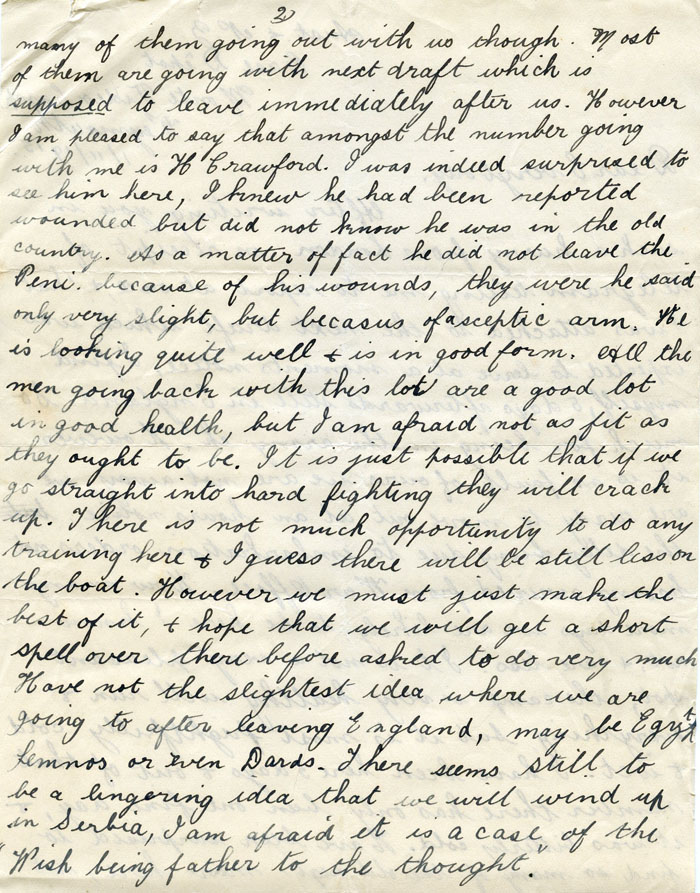 2)
many of them going out with us though. Most
of them are going with next draft which is
supposed to leave immediately after us. However
I am pleased to say that amongst the number going
with me is H Crawford. I was indeed surprised to
see him here, I knew he had been reported
wounded but did not know he was in the old
country. As a matter of fact he did not leave the
Peni. because of his wounds, they were he said
only very slight, but becasus of asceptic arm. He
is looking quite well & is in good form. All the
men going back with this lot are a good lot
in good health, but I am afraid not as fit as
they ought to be. It is just possible that if we
go straight into hard fighting they will crack
up. There is not much opportunity to do any
training here & I guess there will be still less on
the boat. However we must just make the
best of it, & hope that we will get a short
spell over there before asked to do very much
Have not the slightest idea where we are
going to after leaving England, may be Egypt
Lemnos or even Dards. There seems still to
be a lingering idea that we will wind up
in Serbia, I am afraid it is a case of the
"Wish being father to the thought."